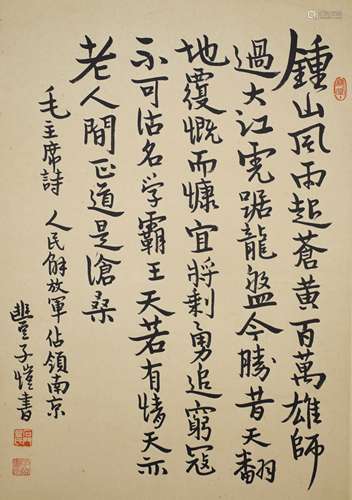 鍾山風雨起蒼黃百萬雄師
過大江虎踞龍盤今勝昔天翻
地覆慨而慷宜將剩勇追窮寇
不可沽名学霸王天若有情天亦
老人間正道是滄桑
毛主席詩 人民解放軍佔領南京
豐子愷書